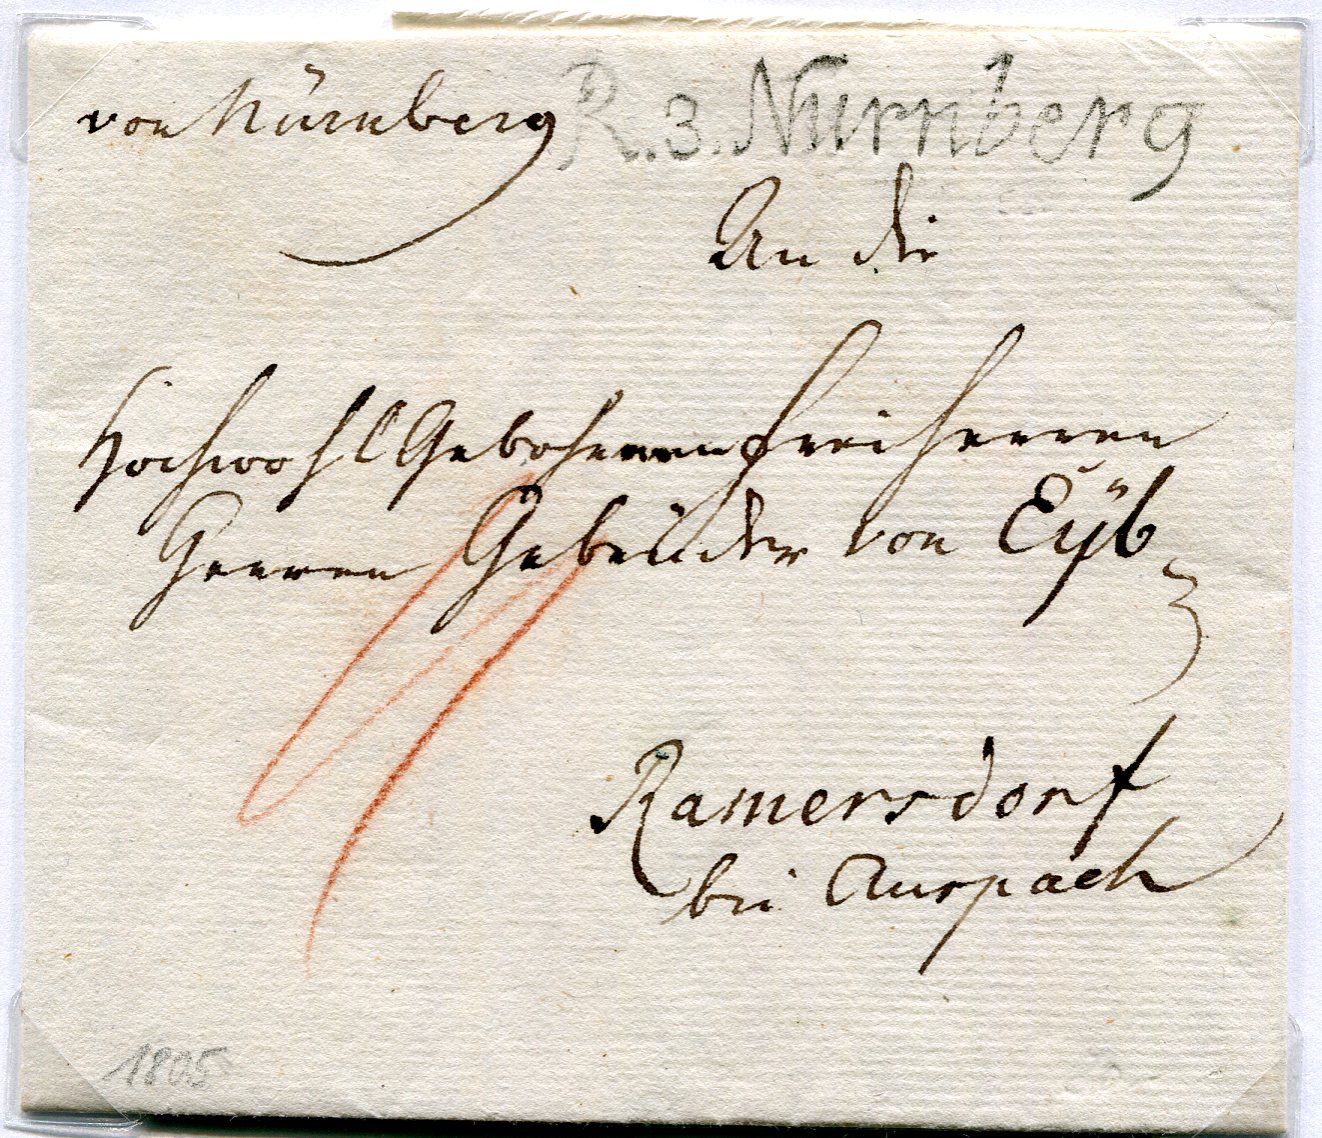 von Nürnberg R.3.Nürnberg
An die
Hochwohl Gebohrenen Freiherren
Herren Gebrüder von Eÿb
Ramersdorf
bei Anspach
1805